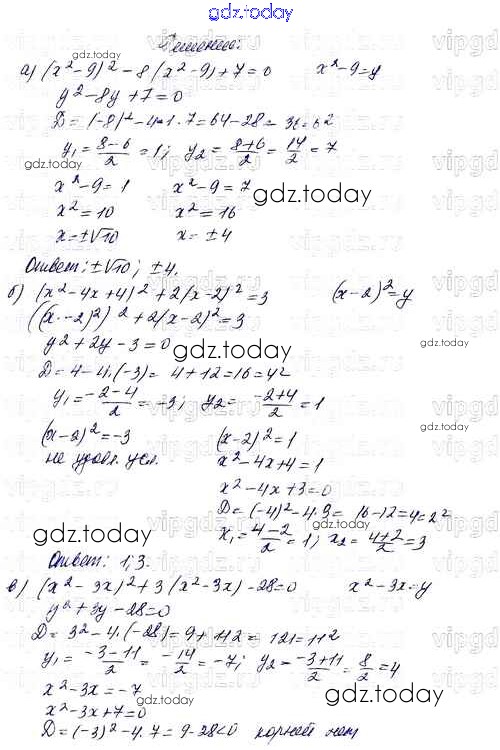 gdz.today
Решение:
а) (x²-9)²-8(x²-9)+7=0 x²-9=y
y²-8y+7=0
D=(-8)²-4·1·7=64-28=36=6²
y₁=(8-6)/2=1; y₂=(8+6)/2=14/2=7
x²-9=1 x²-9=7
x²=10 x²=16
x=±√10 x=±4
Ответ: ±√10; ±4.
б) (x²-4x+4)²+2(x-2)²=3 (x-2)²=y
((x-2)²)²+2(x-2)²=3
y²+2y-3=0
D=4-4·(-3)=4+12=16=4²
y₁=(-2-4)/2=-3; y₂=(-2+4)/2=1
(x-2)²=-3 (x-2)²=1
не удовл. усл. x²-4x+4=1
x²-4x+3=0
D=(-4)²-4·3=16-12=4=2²
x₁=(4-2)/2=1; x₂=(4+2)/2=3
Ответ: 1;3.
в) (x²-3x)²+3(x²-3x)-28=0 x²-3x=y
y²+3y-28=0
D=3²-4·(-28)=9+112=121=11²
y₁=(-3-11)/2=-14/2=-7; y₂=(-3+11)/2=8/2=4
x²-3x=-7
x²-3x+7=0
D=(-3)²-4·7=9-28<0 корней нет